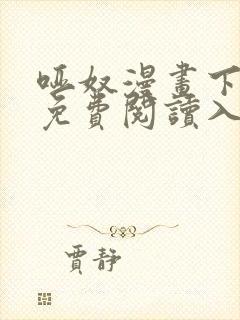 哑奴漫畫下
免費閱讀入
賈靜